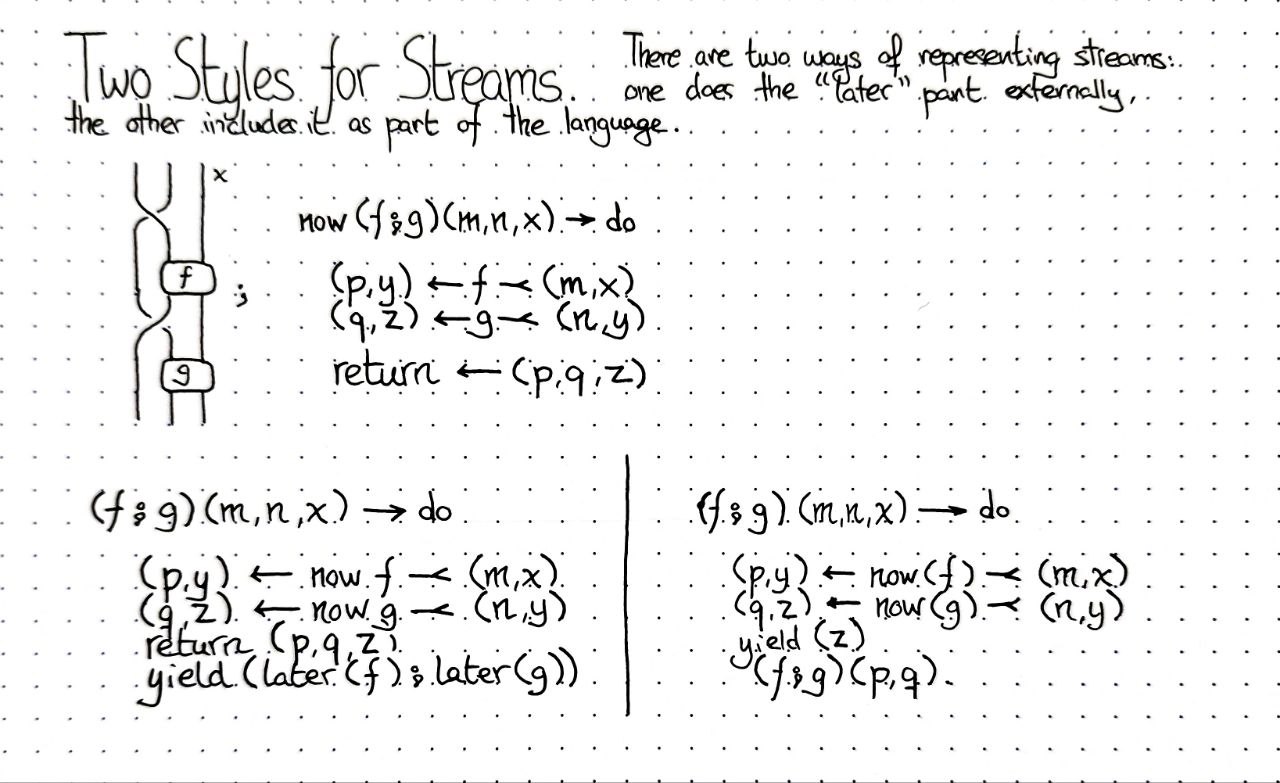 Two Styles for Streams. There are two ways of representing streams:
one does the "later" part externally,
the other includes it as part of the language.
x
now (f⨾g)(m,n,x) → do
f
;
(p,y) ← f ⤙ (m,x)
(q,z) ← g ⤙ (n,y)
g
return ← (p,q,z)
(f⨾g)(m,n,x) → do
(p,y) ← now f ⤙ (m,x)
(q,z) ← now g ⤙ (n,y)
return (p,q,z)
yield (later (f) ⨾ later (g))
(f⨾g)(m,n,x) → do
(p,y) ← now (f) ⤙ (m,x)
(q,z) ← now (g) ⤙ (n,y)
yield (z)
(f⨾g)(p,q).